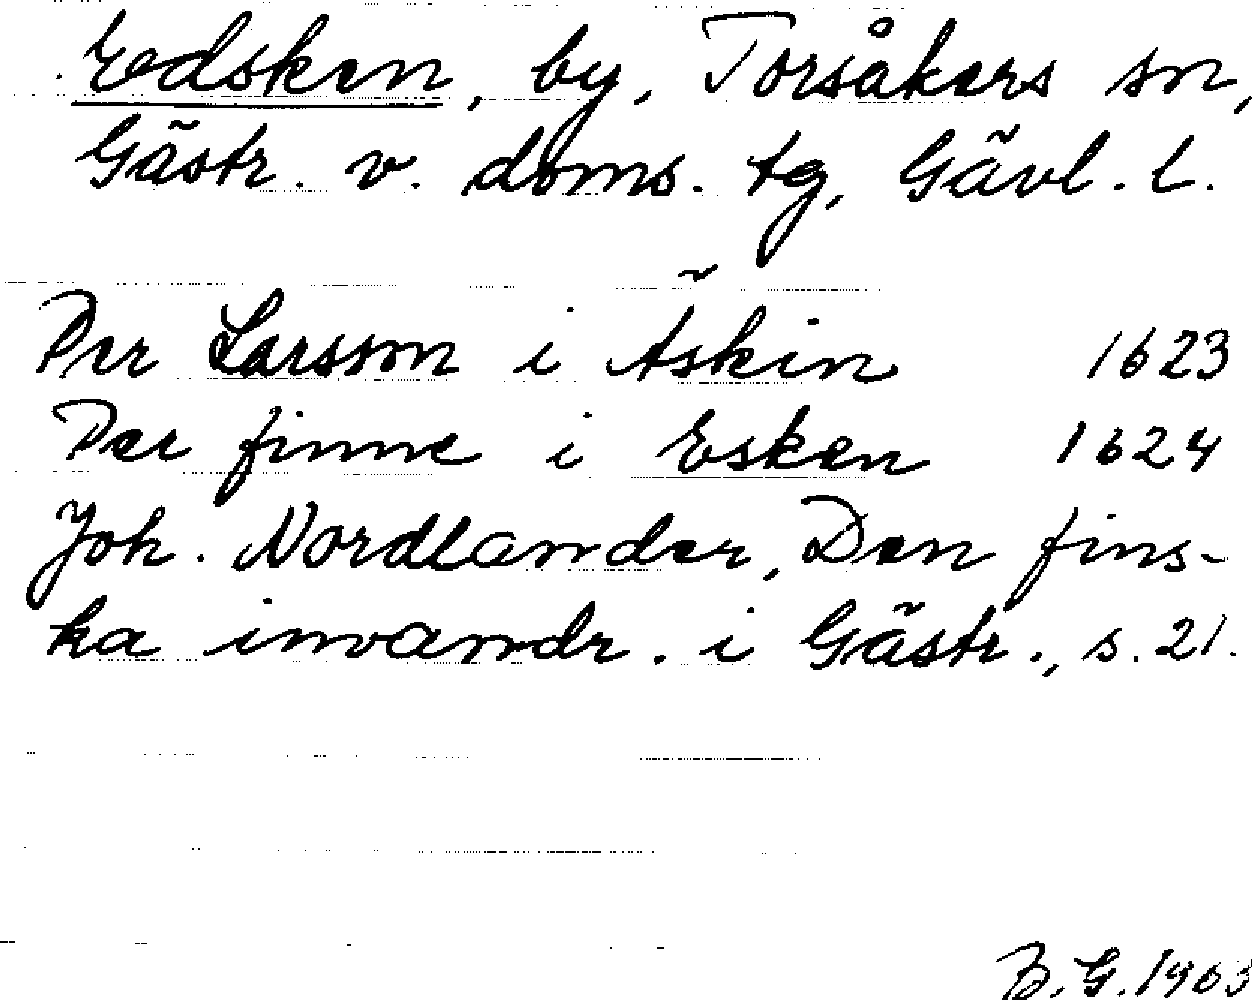 Edsken, by, Torsåkers sn,
Gästr. v. doms. tg, Gävl. l.
Per Larsson i Äskin 1623
Per finne i Esken 1624
Joh. Nordlander, Den fins-
ka invandr. i Gästr., s. 21.
B. G. 1963